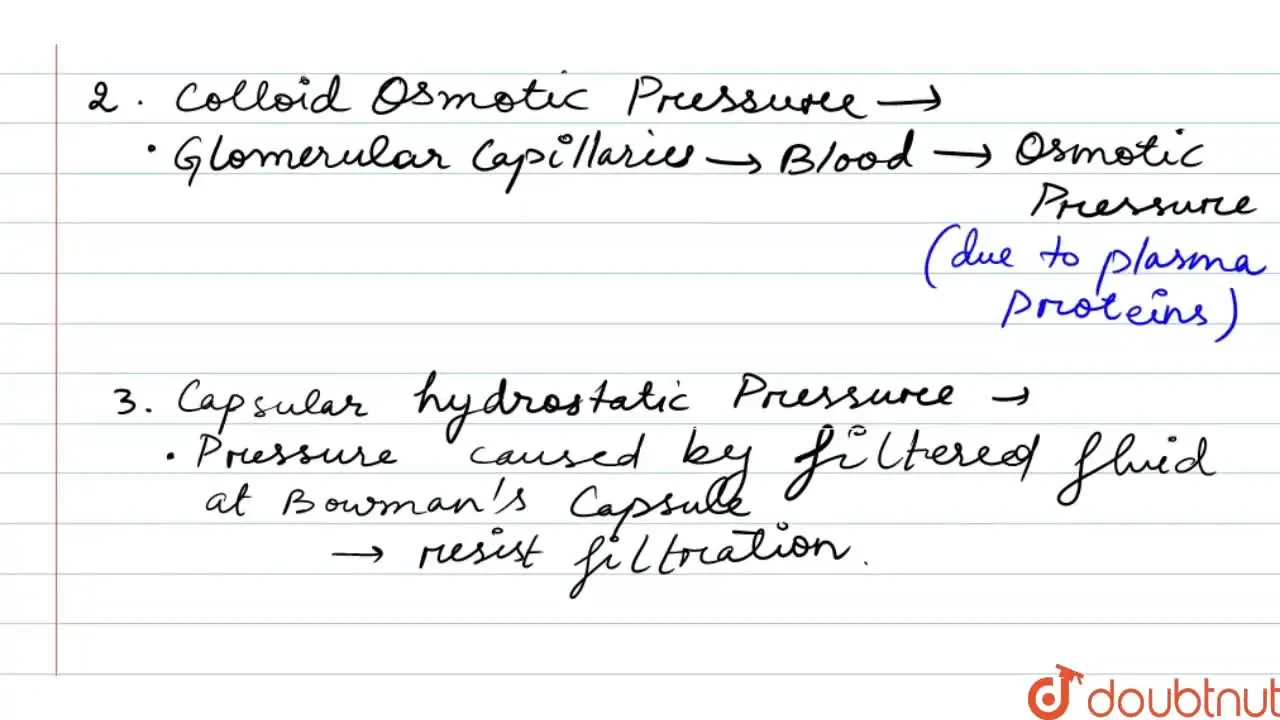 2. Colloid Osmotic Pressure →
• Glomerular Capillaries → Blood → Osmotic
Pressure
(due to plasma
proteins)
3. Capsular hydrostatic Pressure →
• Pressure caused by filtered fluid
at Bowman's Capsule
→ resist filtration.
doubtnut